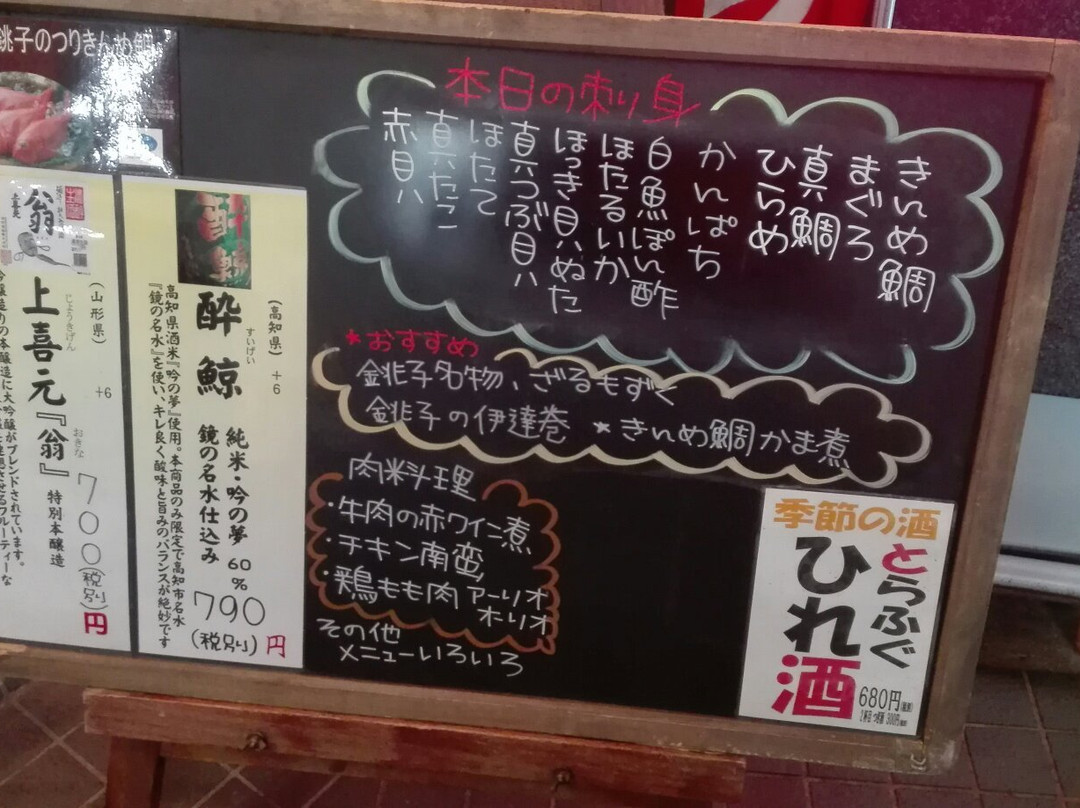 銚子のつりきんめ鯛
本日の刺り身
きんめ鯛
まぐろ
真鯛
ひらめ
かんぱち
白魚ぽん酢
ほたるいか
ほっき貝ぬた
真つぶ貝
ほたて
真たこ
赤貝
*おすすめ
銚子名物、ざるもずく
銚子の伊達巻 *きんめ鯛かま煮
肉料理
・牛肉の赤ワイン煮
・チキン南蛮
・鶏もも肉アーリオ
オーリオ
その他
メニューいろいろ
季節の酒
とらふぐ
ひれ酒
680円
酔鯨
(高知県)
+6
すいげい
酔鯨
純米・吟の夢 60%
鏡の名水仕込み
高知県酒米・吟の夢』使用。本商品のみ限定で高知市名水
『鏡の名水』を使い、キレ良く酸味と旨みのバランスが絶妙です
790
(税別)円
翁
(山形県)
+6
じょうきげん
おきな
上喜元『翁』
特別本醸造
700(税別)円